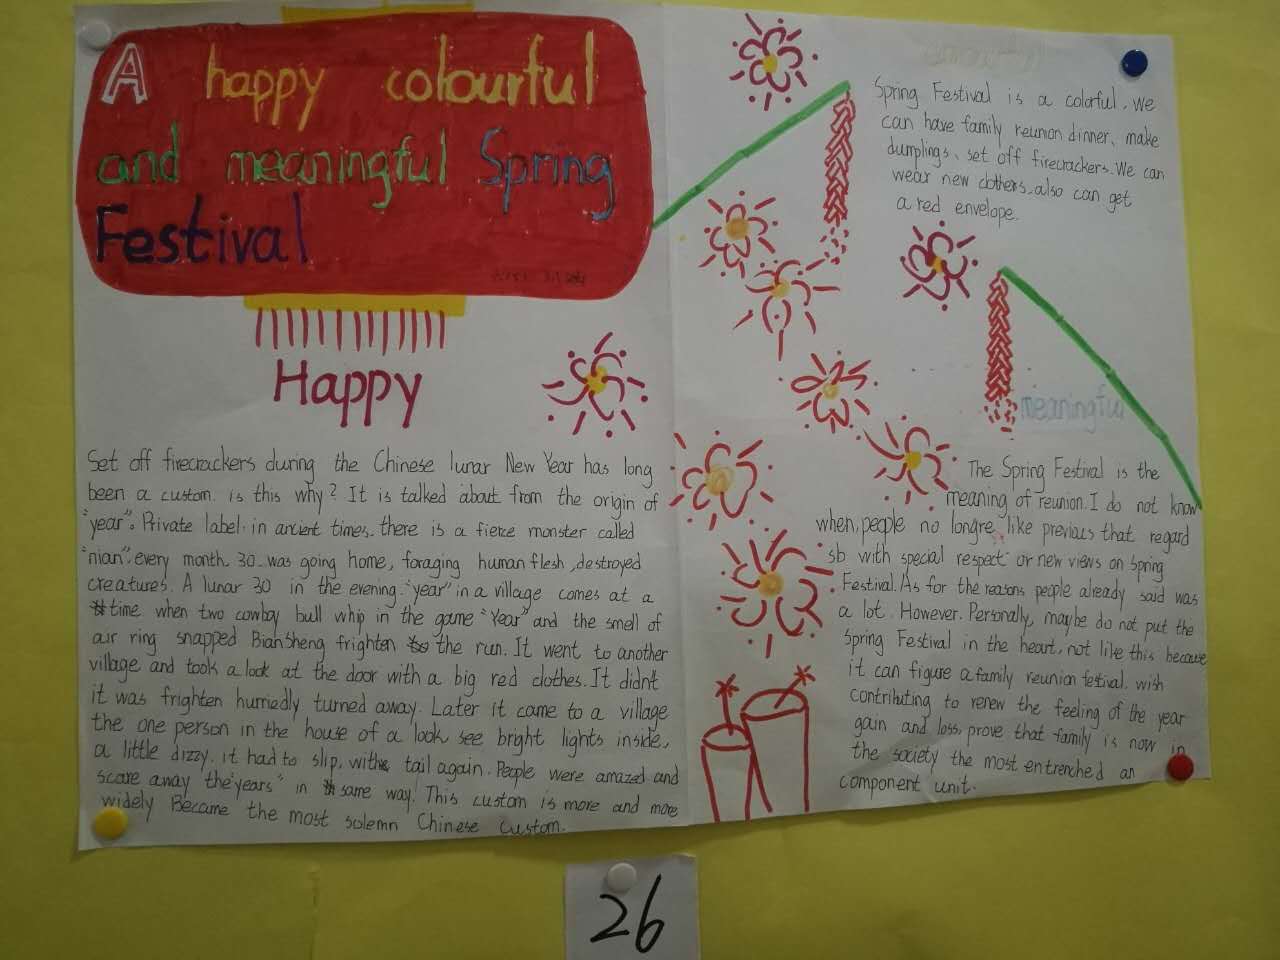 A happy colourful
and meaningful Spring
Festival
Happy
Set off firecrackers during the Chinese lunar New Year has long
been a custom. is this why? It is talked about from the origin of
"year". Private label. in ancient times. there is a fierce monster called
"nian". every month 30 was going home, foraging human flesh, destroyed
creatures. A lunar 30 in the evening. "year" in a village comes at a
time when two cowboy bull whip in the game "Year" and the smell of
air ring snapped BianSheng frighten the run. It went to another
village and took a look at the door with a big red clothes. It didn't
it was frighten hurriedly turned away. Later it came to a village
the one person in the house of a look see bright lights inside,
a little dizzy. it had to slip, with tail again. People were amazed and
scare away the "years" in same way. This custom is more and more
widely Became the most solemn Chinese Custom.
colourful
Spring Festival is a colorful. We
can have family reunion dinner、make
dumplings、set off firecrackers. We can
wear new clothers. also can get
a red envelope.
meaningful
The Spring Festival is the
meaning of reunion. I do not know
when, people no longre, like previous that regard
sb with special respect or new views on Spring
Festival. As for the reasons people already said was
a lot. However. Personally, maybe do not put the
Spring Festival in the heart, not like this because
it can figure a family reunion festival. wish
contributing to renew the feeling of the year
gain and loss, prove that family is now in
the society the most entrenched an
component unit.
26